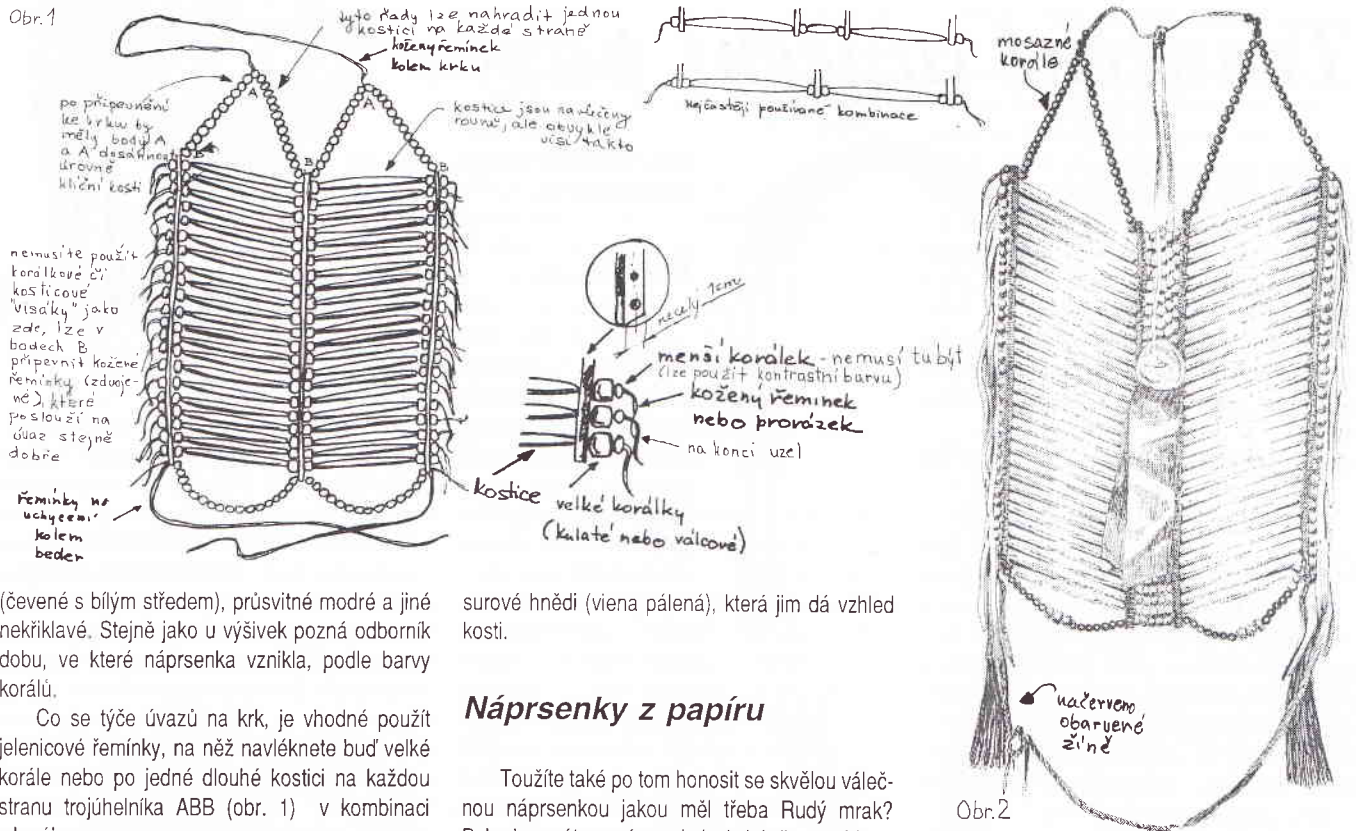 Obr. 1
tyto řady lze nahradit jednou
kosticí na každé straně
kožený řemínek
kolem krku
po připevnění
ke krku by
měly body A
a A dosáhnout
úrovně
klíční kosti
A
A
B
B
B
kostice jsou navlečeny
rovně, ale obvykle
visí takto
nemusíte použít
korálkové či
kosticové
"visáky" jako
zde, lze v
bodech B
připevnit kožené
řemínky (zdvoje-
né), které
poslouží na
úvaz stejně
dobře
řemínky na
uchycení
kolem
beder
nejčastěji používané kombinace
necelý 1cm
menší korálek - nemusí tu být
(lze použít kontrastní barvu)
kožený řemínek
nebo provázek
na konci uzel
kostice
velké korálky
(kulaté nebo válcové)
mosazné
korále
načerveno
obarvené
žíně
Obr. 2
(čevené s bílým středem), průsvitné modré a jiné
nekřiklavé. Stejně jako u výšivek pozná odborník
dobu, ve které náprsenka vznikla, podle barvy
korálů.
Co se týče úvazů na krk, je vhodné použít
jelenicové řemínky, na něž navléknete buď velké
korále nebo po jedné dlouhé kostici na každou
stranu trojúhelníka ABB (obr. 1) v kombinaci
surové hnědi (viena pálená), která jim dá vzhled
kosti.
Náprsenky z papíru
Toužíte také po tom honosit se skvělou váleč-
nou náprsenkou jakou měl třeba Rudý mrak?